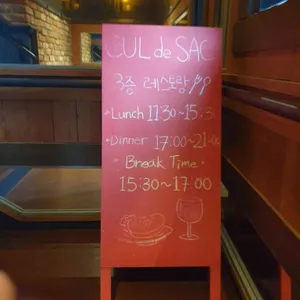 CUL de SAC
3층 레스토랑
Lunch 11:30~15:30
Dinner 17:00~21:00
" Break Time "
15:30~17:00